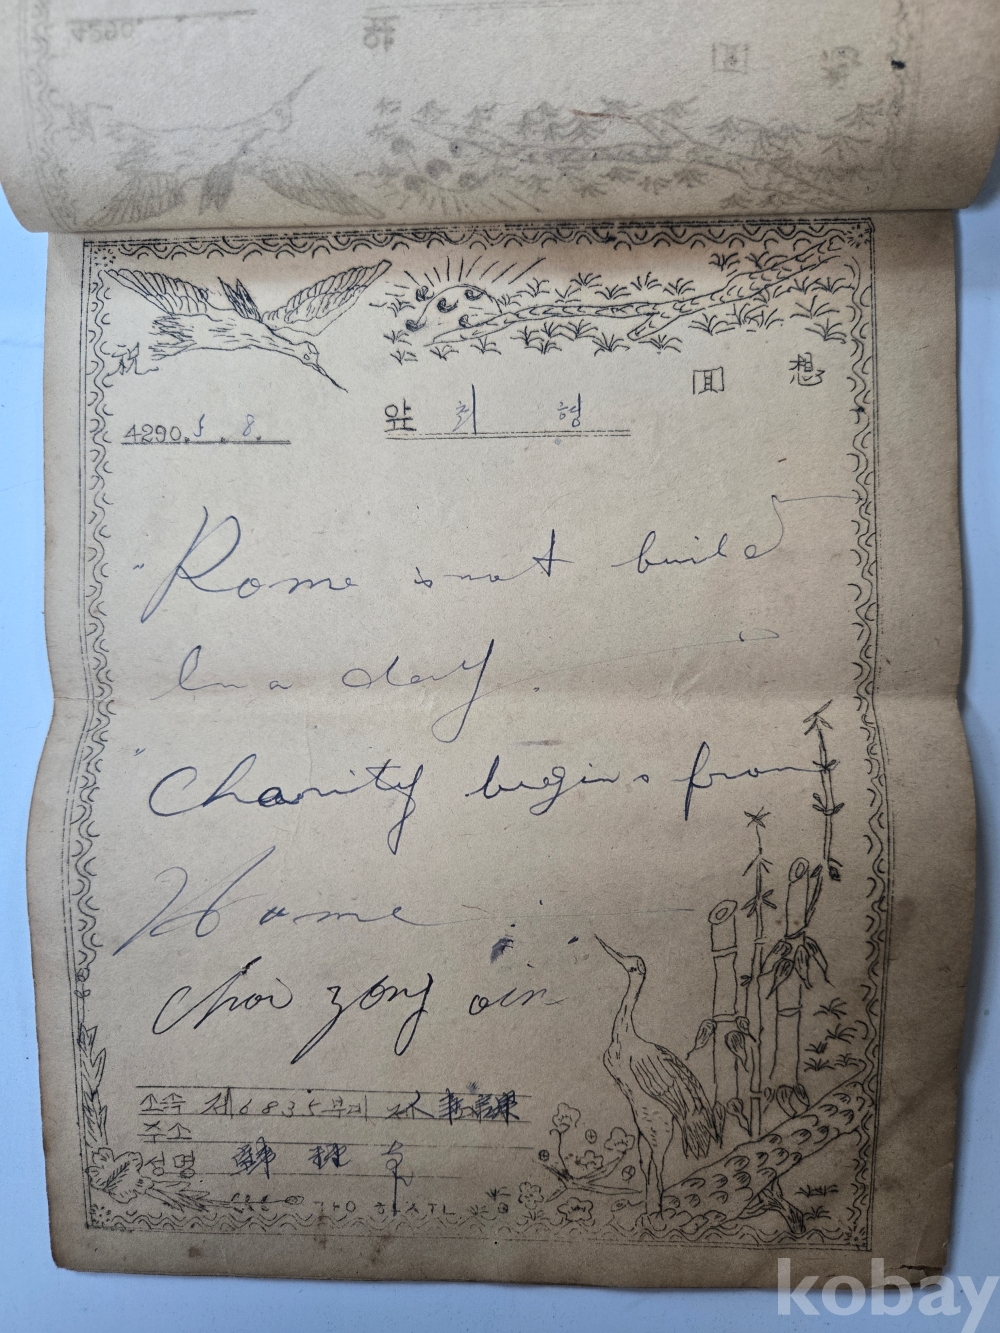 4290.
祝
回 想
4290. 5. 8.
앞 최 형
"Rome is not build
In a day.
"Charity begins from
Home
Choi zong oin
소속 제6835부대
주소
성명
kobay